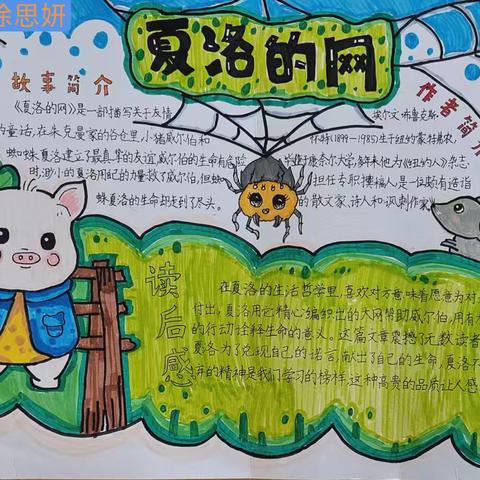 徐思妍
夏洛的网
故事简介
《夏洛的网》是一部描写关于友情
的童话,在朱克曼家的谷仓里,小猪威尔伯和
蜘蛛夏洛建立了最真挚的友谊,威尔伯的生命有危险
时,渺小的夏洛用自己的力量救了威尔伯,但蜘
蛛夏洛的生命却走到了尽头。
作者简介
埃尔文·布鲁克斯·
怀特(1899—1985)生于纽约蒙特弗农,
毕业于康奈尔大学,多年来他为《纽约人》杂志
担任专职撰稿人是一位颇有造诣
的散文家、诗人和讽刺作家
读后感
在夏洛的生活哲学里,喜欢对方意味着愿意为对
付出,夏洛用它精心编织出的大网帮助威尔伯,用有
的行动诠释生命的意义。这篇文章震撼了无数读者
夏洛为了兑现自己的诺言,献出了自己的生命,夏洛
弃的精神是我们学习的榜样,这种高贵的品质让人感